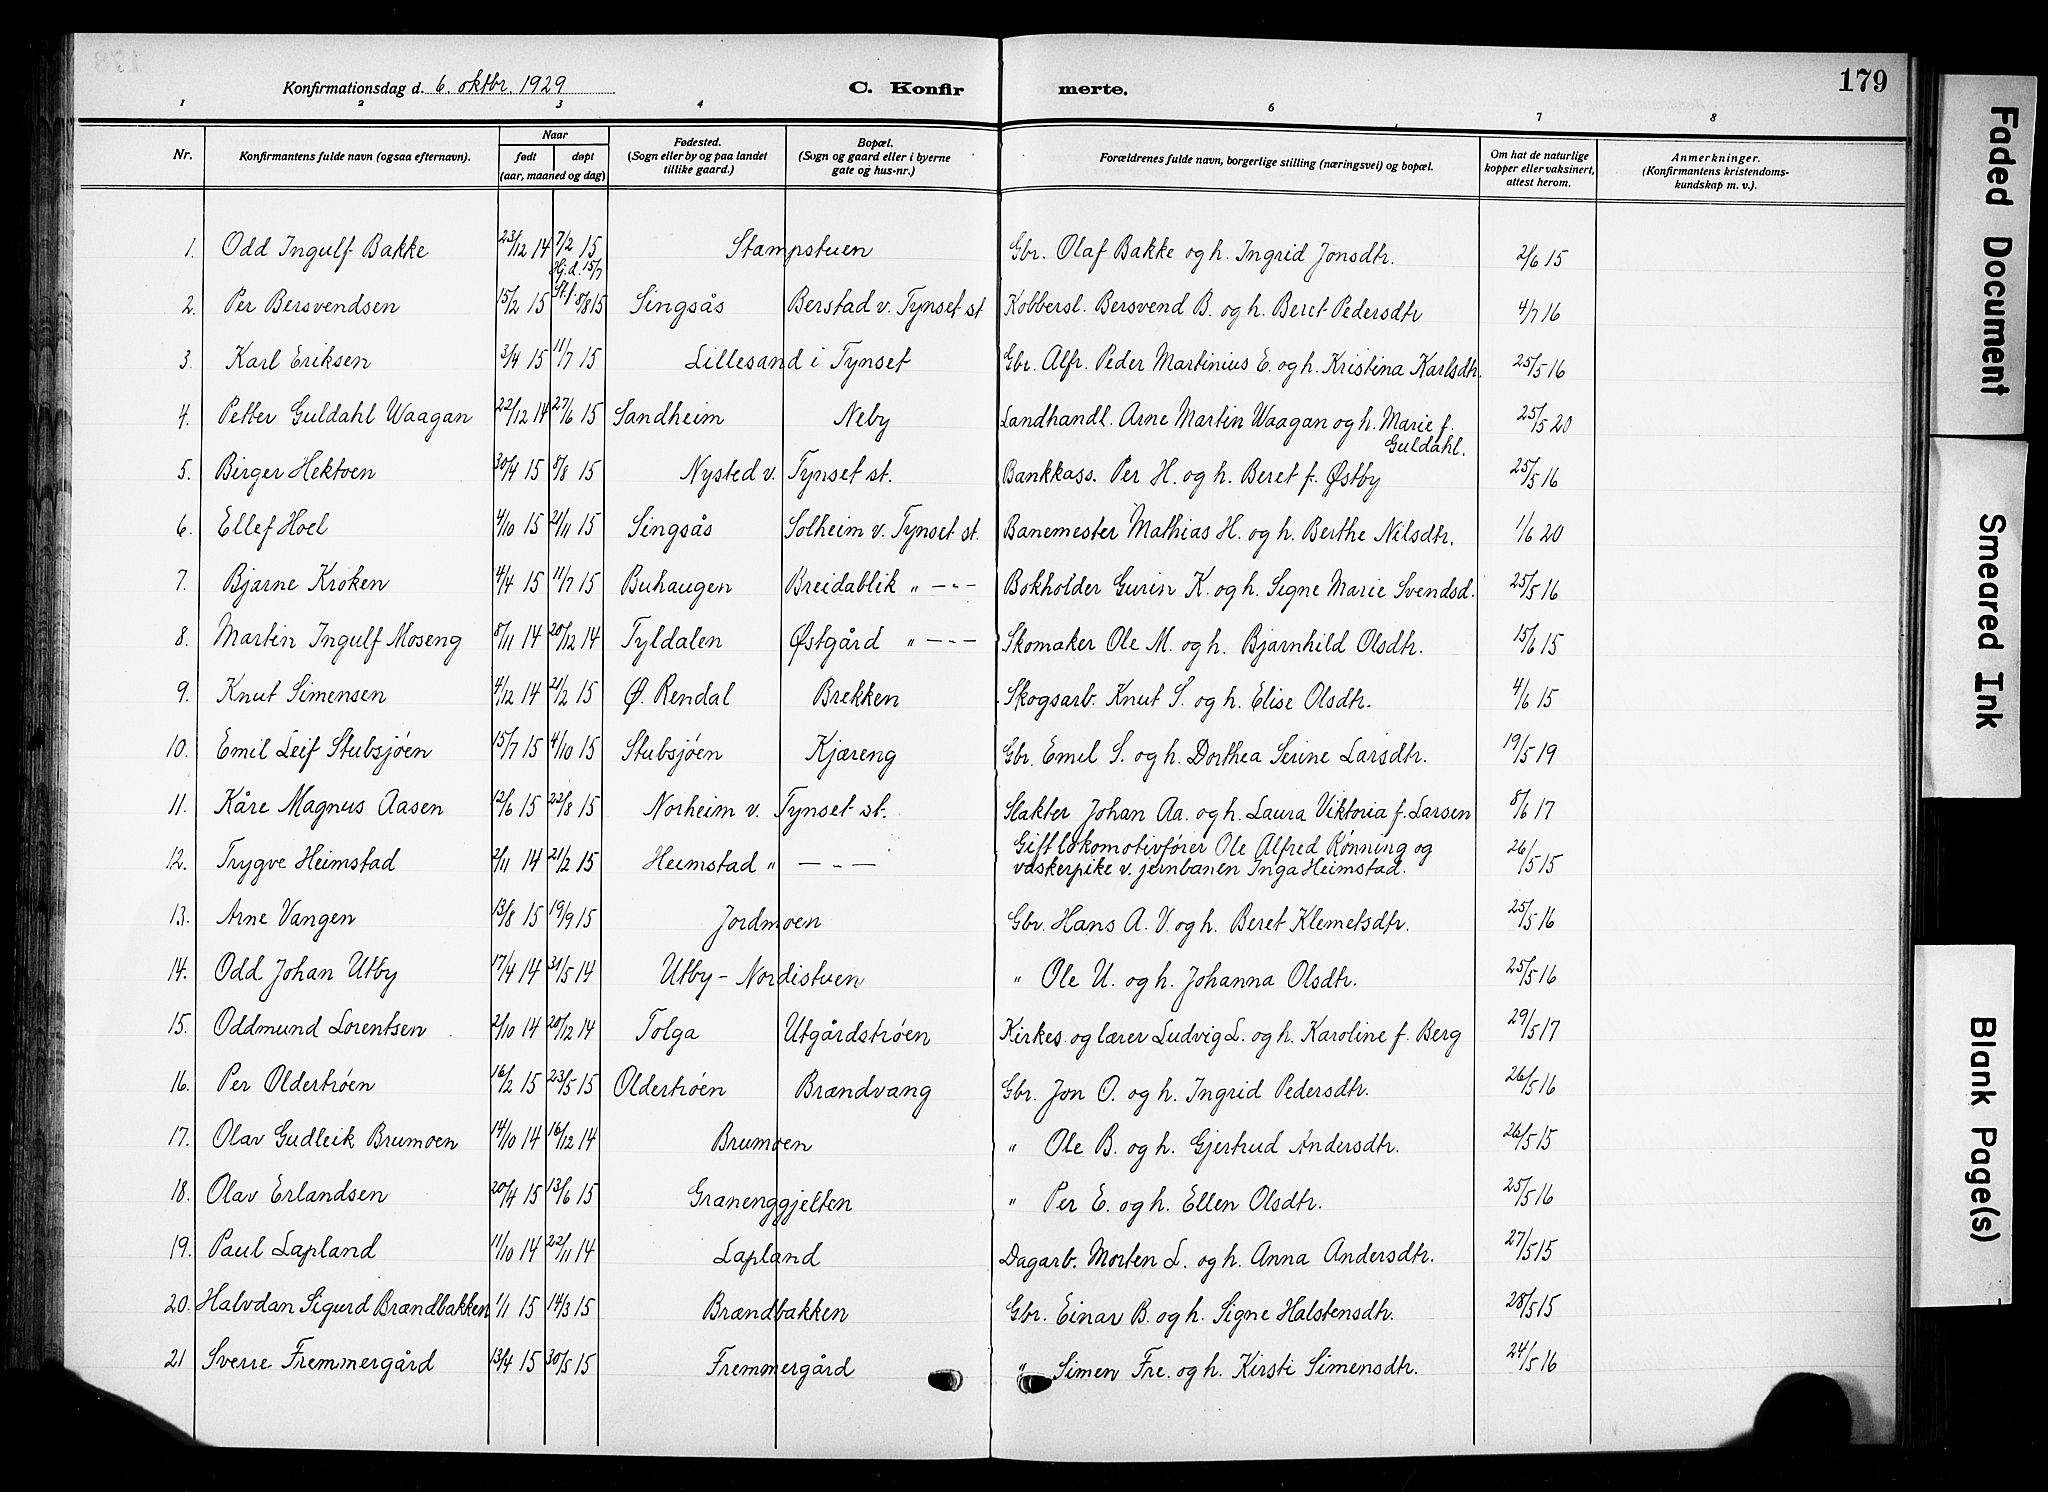 179
Konfirmationsdag d. 6. oktbr. 1929 C. Konfirmerte.
1 2 3 4 5 6 7 8
Nr. Konfirmantens fulde navn (ogsaa efternavn). Naar født døpt (aar, maaned og dag) Fødested. (Sogn eller by og paa landet tillike gaard.) Bopæl. (Sogn og gaard eller i byerne gate og hus-nr.) Forældrenes fulde navn, borgerlige stilling (næringsvei) og bopæl. Om hat de naturlige kopper eller vaksinert, attest herom. Anmerkninger. (Konfirmantens kristendomskundskap m. v.)
1. Odd Ingulf Bakke 23/12 14 7/2 15 Stampstuen Gbr. Olaf Bakke og h. Ingrid Jonsdtr. 2/6 15
2. Per Bersvendsen 15/2 15 Hj.d. 15/7 St.f. 8/8 15 Singsås Berstad v. Tynset st Kobbersl. Bersvend B. og h. Beret Pedersdtr 4/7 16
3. Karl Eriksen 3/4 15 11/7 15 Lillesand i Tynset Gbr. Alfr. Peder Martinius E. og h. Kristina Karlsdtr. 25/5 16
4. Petter Guldahl Waagan 22/12 14 27/6 15 Sandheim Neby Landhandl. Arne Martin Waagan og h. Marie f. Guldahl. 25/5 20
5. Birger Hektoen 30/4 15 8/8 15 Nysted v. Tynset st. Bankkass. Per H. og h. Beret f. Østby 25/5 16
6. Ellef Hoel 4/10 15 21/11 15 Singsås Solheim v. Tynset st. Banemester Mathias H. og h. Berthe Nilsdtr. 1/6 20
7. Bjarne Kroken 4/4 15 11/7 15 Buhaugen Breidablik " - - - Bokholder Gurin K. og h. Signe Marie Svendsd. 25/5 16
8. Martin Ingulf Moseng 8/11 14 20/12 14 Tyldalen Østgård " - - - Skomaker Ole M. og h. Bjarnhild Olsdtr. 15/6 15
9. Knut Simensen 4/12 14 21/2 15 Ø. Rendal Brekken Skogsarb. Knut S. og h. Elise Olsdtr. 4/6 15
10. Emil Leif Stubsjøen 15/7 15 4/10 15 Stubsjøen Kjæreng Gbr. Emil S. og h. Dorthea Serine Larsdtr. 19/5 19
11. Kåre Magnus Aasen 12/6 15 22/8 15 Norheim v. Tynset st. Slakter Johan Aa. og h. Laura Viktoria f. Larsen 8/6 17
12. Trygve Heimstad 2/11 14 21/2 15 Heimstad " - - - Gift lokomotivfører Ole Alfred Rønning og vaskerpike v. jernbanen Inga Heimstad. 26/5 15
13. Arne Vangen 13/8 15 19/9 15 Jordmoen Gbr. Hans A. V. og h. Beret Klemetsdtr. 25/5 16
14. Odd Johan Utby 17/4 14 31/5 14 Utby - Nordistuen " Ole U. og h. Johanna Olsdtr. 25/5 16
15. Oddmund Lorentsen 2/10 14 20/12 14 Tolga Utgårdstrøen Kirkes. og lærer Ludvig L. og h. Karoline f. Berg 29/5 17
16. Per Oldertrøen 16/2 15 23/5 15 Oldertrøen Brændvang Gbr. Jon O. og h. Ingrid Pedersdtr. 26/5 16
17. Olav Gudleik Brumoen 14/10 14 16/12 14 Brumoen " Ole B. og h. Gjertrud Andersdtr. 26/5 15
18. Olav Erlandsen 20/4 15 13/6 15 Granenggjelten " Per E. og h. Ellen Olsdtr. 25/5 16
19. Paul Lapland 11/10 14 22/11 14 Lapland Dagarb. Morten L. og h. Anna Andersdtr. 27/5 15
20. Halvdan Sigurd Brændbakken 1/1 15 14/3 15 Brændbakken Gbr. Einar B. og h. Signe Halstensdtr. 28/5 15
21 Sverre Fremmergård 13/4 15 30/5 15 Fremmergård " Simen Fre. og h. Kirsti Simensdtr. 24/5 16
Faded Document
Smeared Ink
Blank Page(s)